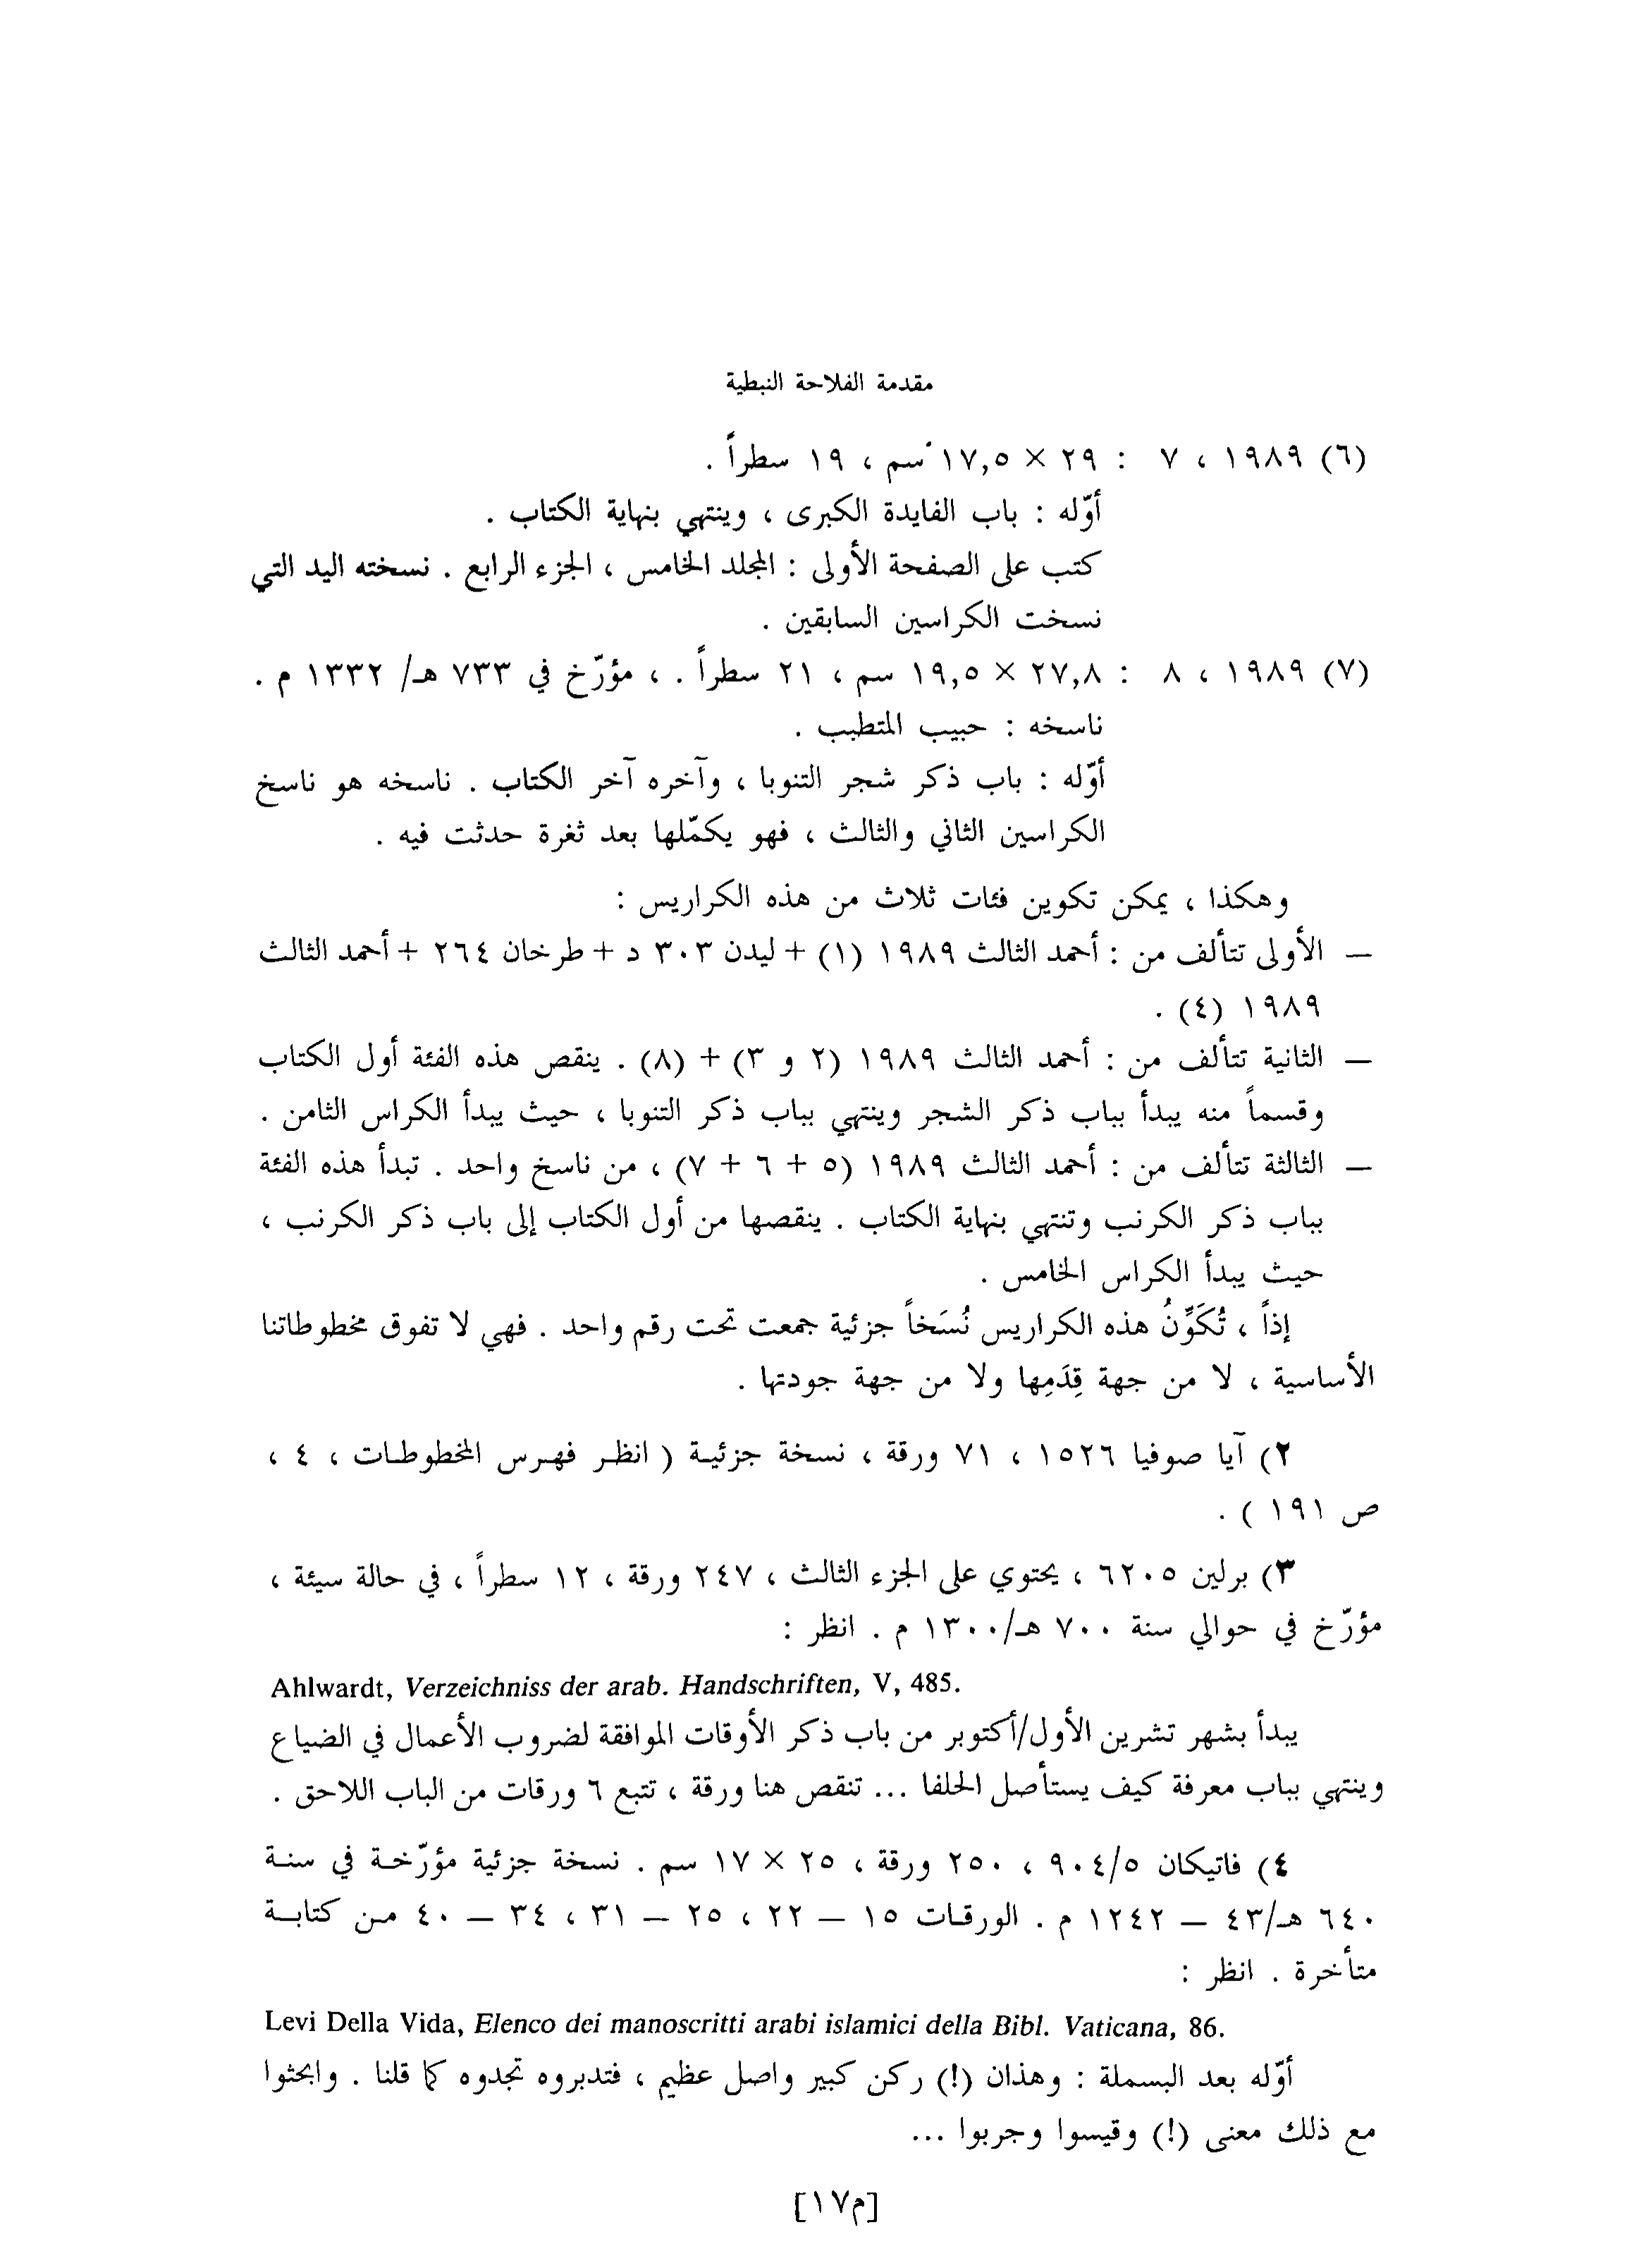 مقدمة الفلاحة النبطية
(٦) ١٩٨٩ ، ٧ : ٢٩ × ١٧,٥ سم ، ١٩ سطراً .
أوّله : باب الفايدة الكبرى ، وينتهي بنهاية الكتاب .
كتب على الصفحة الأولى : المجلد الخامس ، الجزء الرابع . نسخته اليد التي
نسخت الكراسين السابقين .
(٧) ١٩٨٩ ، ٨ : ٢٧,٨ × ١٩,٥ سم ، ٢١ سطراً . ، مؤرّخ في ٧٣٣ هـ/ ١٣٣٢ م .
ناسخه : حبيب المتطبب .
أوّله : باب ذكر شجر التنوبا ، وآخره آخر الكتاب . ناسخه هو ناسخ
الكراسين الثاني والثالث ، فهو يكمّلها بعد ثغرة حدثت فيه .
وهكذا ، يمكن تكوين فئات ثلاث من هذه الكراريس :
— الأولى تتألف من : أحمد الثالث ١٩٨٩ (١) + ليدن ٣٠٣ د + طرخان ٢٦٤ + أحمد الثالث
١٩٨٩ (٤) .
— الثانية تتألف من : أحمد الثالث ١٩٨٩ (٢ و ٣) + (٨) . ينقص هذه الفئة أول الكتاب
وقسماً منه يبدأ بباب ذكر الشجر وينتهي بباب ذكر التنوبا ، حيث يبدأ الكراس الثامن .
— الثالثة تتألف من : أحمد الثالث ١٩٨٩ (٥ + ٦ + ٧) ، من ناسخ واحد . تبدأ هذه الفئة
بباب ذكر الكرنب وتنتهي بنهاية الكتاب . ينقصها من أول الكتاب إلى باب ذكر الكرنب ،
حيث يبدأ الكراس الخامس .
إذاً ، تُكَوِّنُ هذه الكراريس نُسَخاً جزئية جمعت تحت رقم واحد . فهي لا تفوق مخطوطاتنا
الأساسية ، لا من جهة قِدَمِها ولا من جهة جودتها .
٢) آيا صوفيا ١٥٢٦ ، ٧١ ورقة ، نسخة جزئية ( انظر فهرس المخطوطات ، ٤ ،
ص ١٩١ ) .
٣) برلين ٦٢٠٥ ، يحتوي على الجزء الثالث ، ٢٤٧ ورقة ، ١٢ سطراً ، في حالة سيئة ،
مؤرّخ في حوالي سنة ٧٠٠ هـ/١٣٠٠ م . انظر :
Ahlwardt, Verzeichniss der arab. Handschriften, V, 485.
يبدأ بشهر تشرين الأول/أكتوبر من باب ذكر الأوقات الموافقة لضروب الأعمال في الضياع
وينتهي بباب معرفة كيف يستأصل الحلفا ... تنقص هنا ورقة ، تتبع ٦ ورقات من الباب اللاحق .
٤) فاتيكان ٩٠٤/٥ ، ٢٥٠ ورقة ، ٢٥ × ١٧ سم . نسخة جزئية مؤرّخة في سنة
٦٤٠ هـ/٤٣ — ١٢٤٢ م . الورقات ١٥ — ٢٢ ، ٢٥ — ٣١ ، ٣٤ — ٤٠ من كتابة
متأخرة . انظر :
Levi Della Vida, Elenco dei manoscritti arabi islamici della Bibl. Vaticana, 86.
أوّله بعد البسملة : وهذان (!) ركن كبير واصل عظيم ، فتدبروه تجدوه كما قلنا . وابحثوا
مع ذلك معنى (!) وقيسوا وجربوا ...
[م١٧]